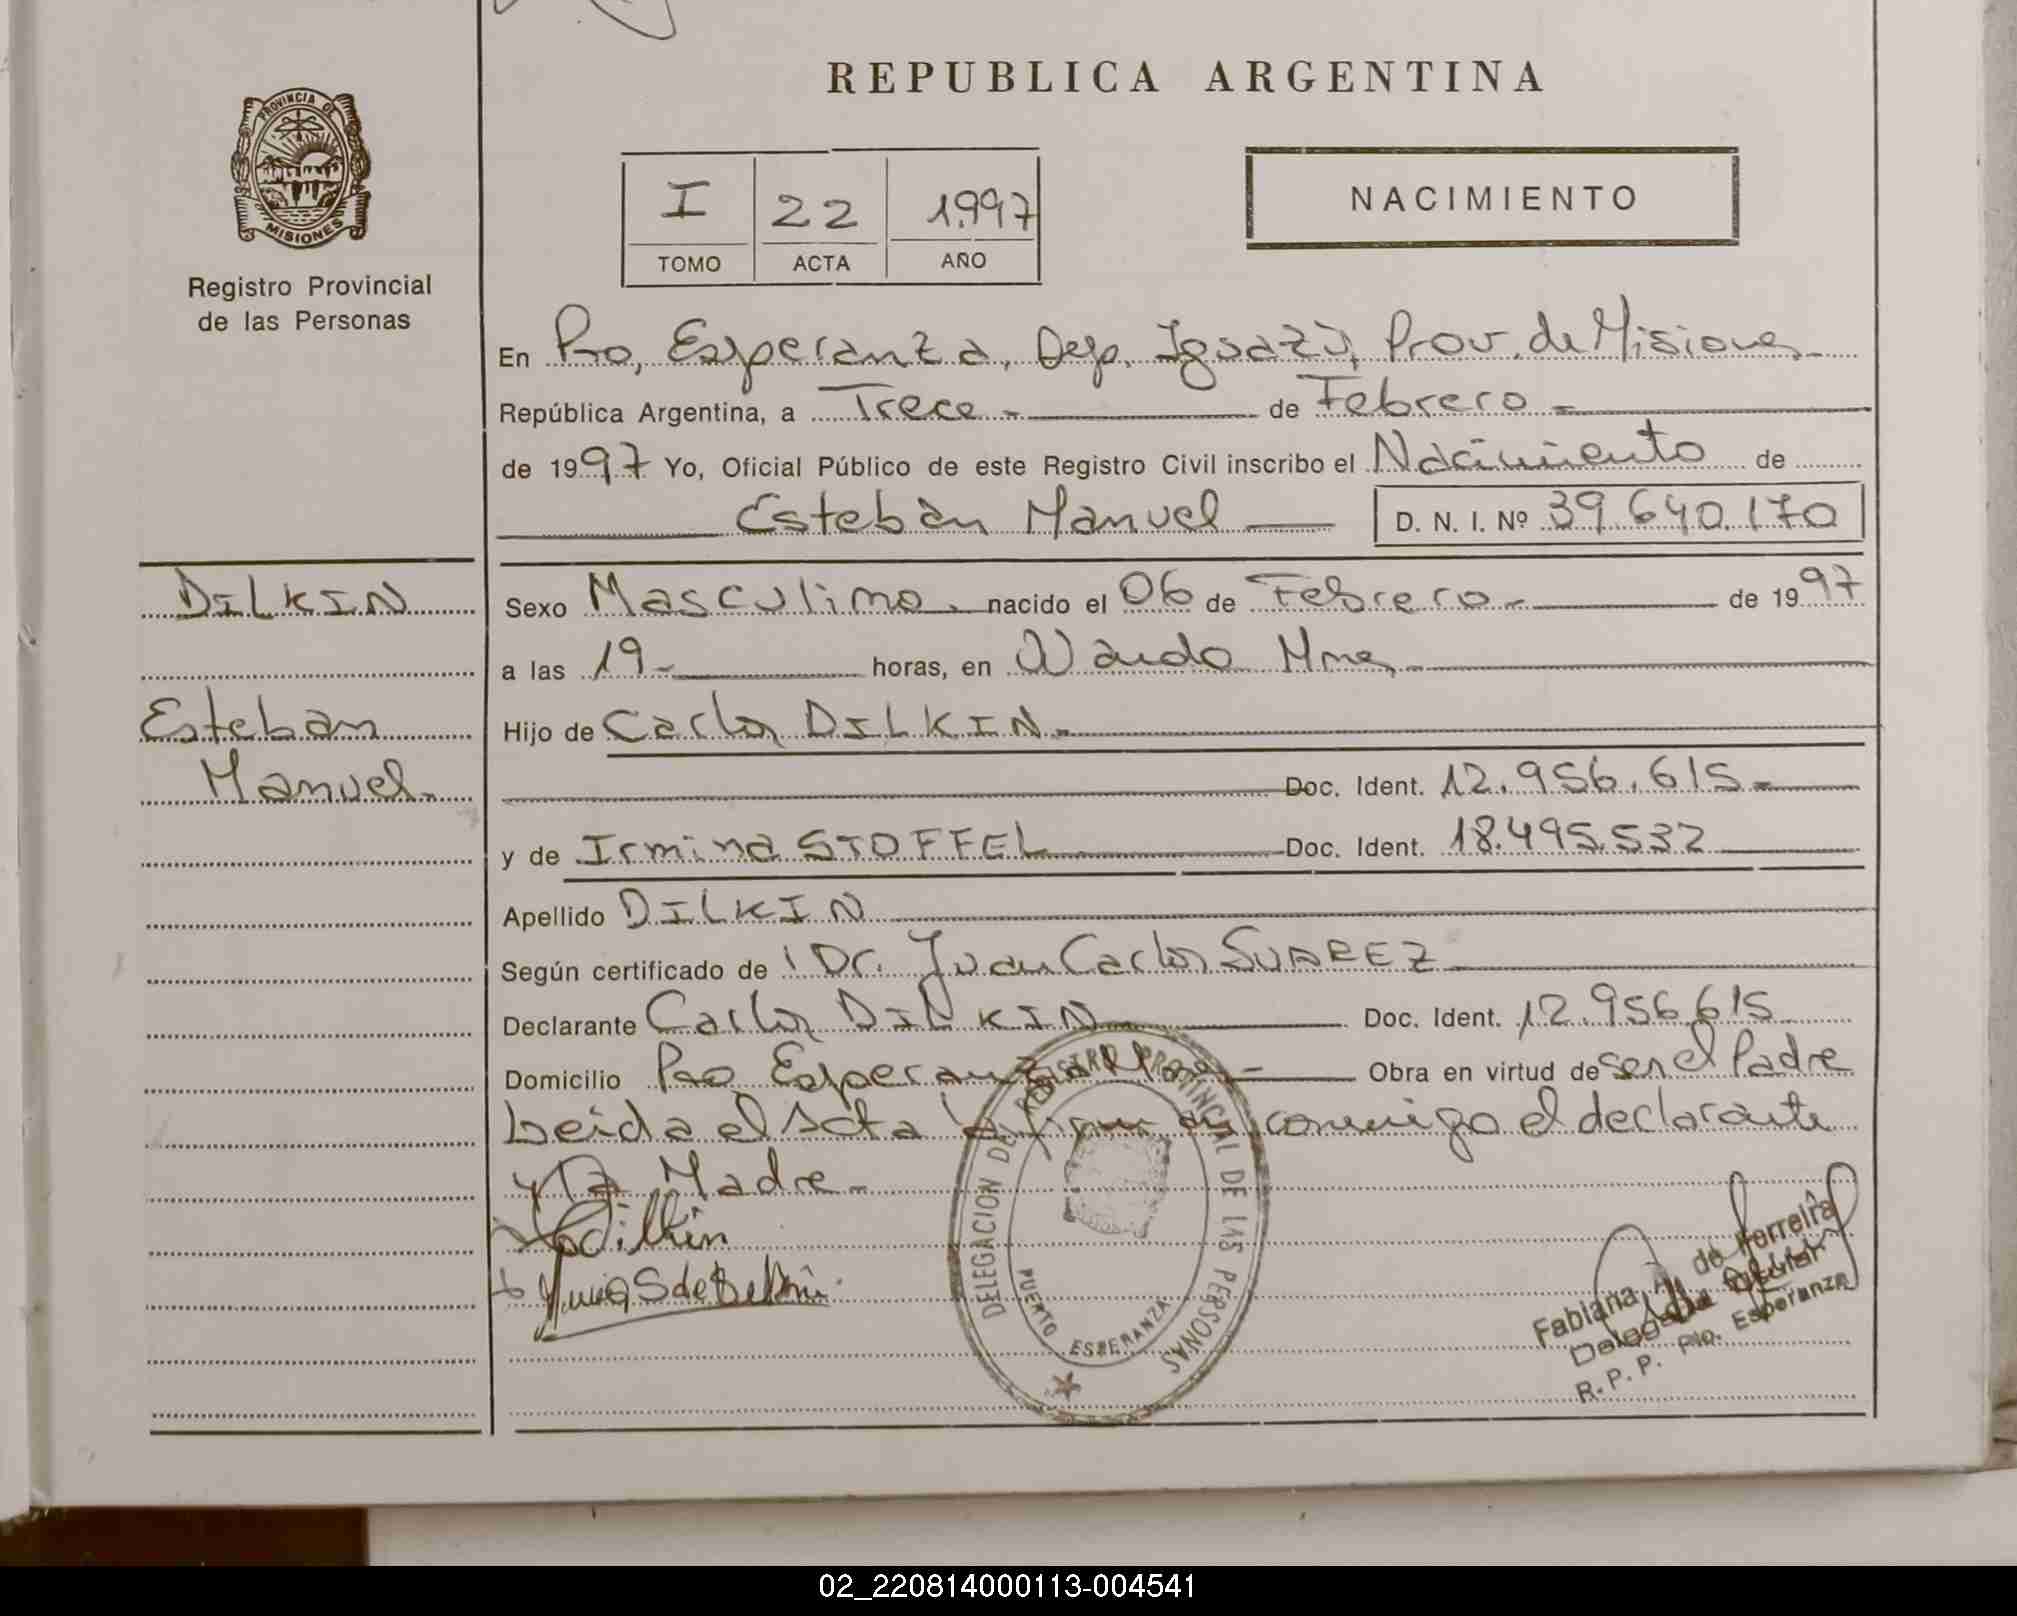 REPUBLICA ARGENTINA
PROVINCIA DE
MISIONES
Registro Provincial
de las Personas
I 22 1.997
TOMO ACTA AÑO
NACIMIENTO
En Pto, Esperanza, Dep. Iguazú, Prov. de Misiones
República Argentina, a Trece de Febrero
de 1997 Yo, Oficial Público de este Registro Civil inscribo el Nacimiento de
Esteban Manuel D. N. I. Nº 39.640.170
DILKIN
Esteban
Manuel
Sexo Masculino nacido el 06 de Febrero de 1997
a las 19 horas, en Wanda Mnes
Hijo de Carlos DILKIN
Doc. Ident. 12.956.615
y de Irmina STOFFEL Doc. Ident. 18.495.532
Apellido DILKIN
Según certificado de Dr. Juan Carlos SUAREZ
Declarante Carlos DILKIN Doc. Ident. 12.956.615
Domicilio Pto Esperanza Mnes Obra en virtud de ser el Padre
Leida el Acta la firman conmigo el declarante
y la Madre
Dilkin
S de Dilkin
DELEGACION DE REGISTRO PROVINCIAL DE LAS PERSONAS
PUERTO ESPERANZA
Fabiana de Ferreira
Delegada Titular
R. P. P. Pto. Esperanza
02_220814000113-004541